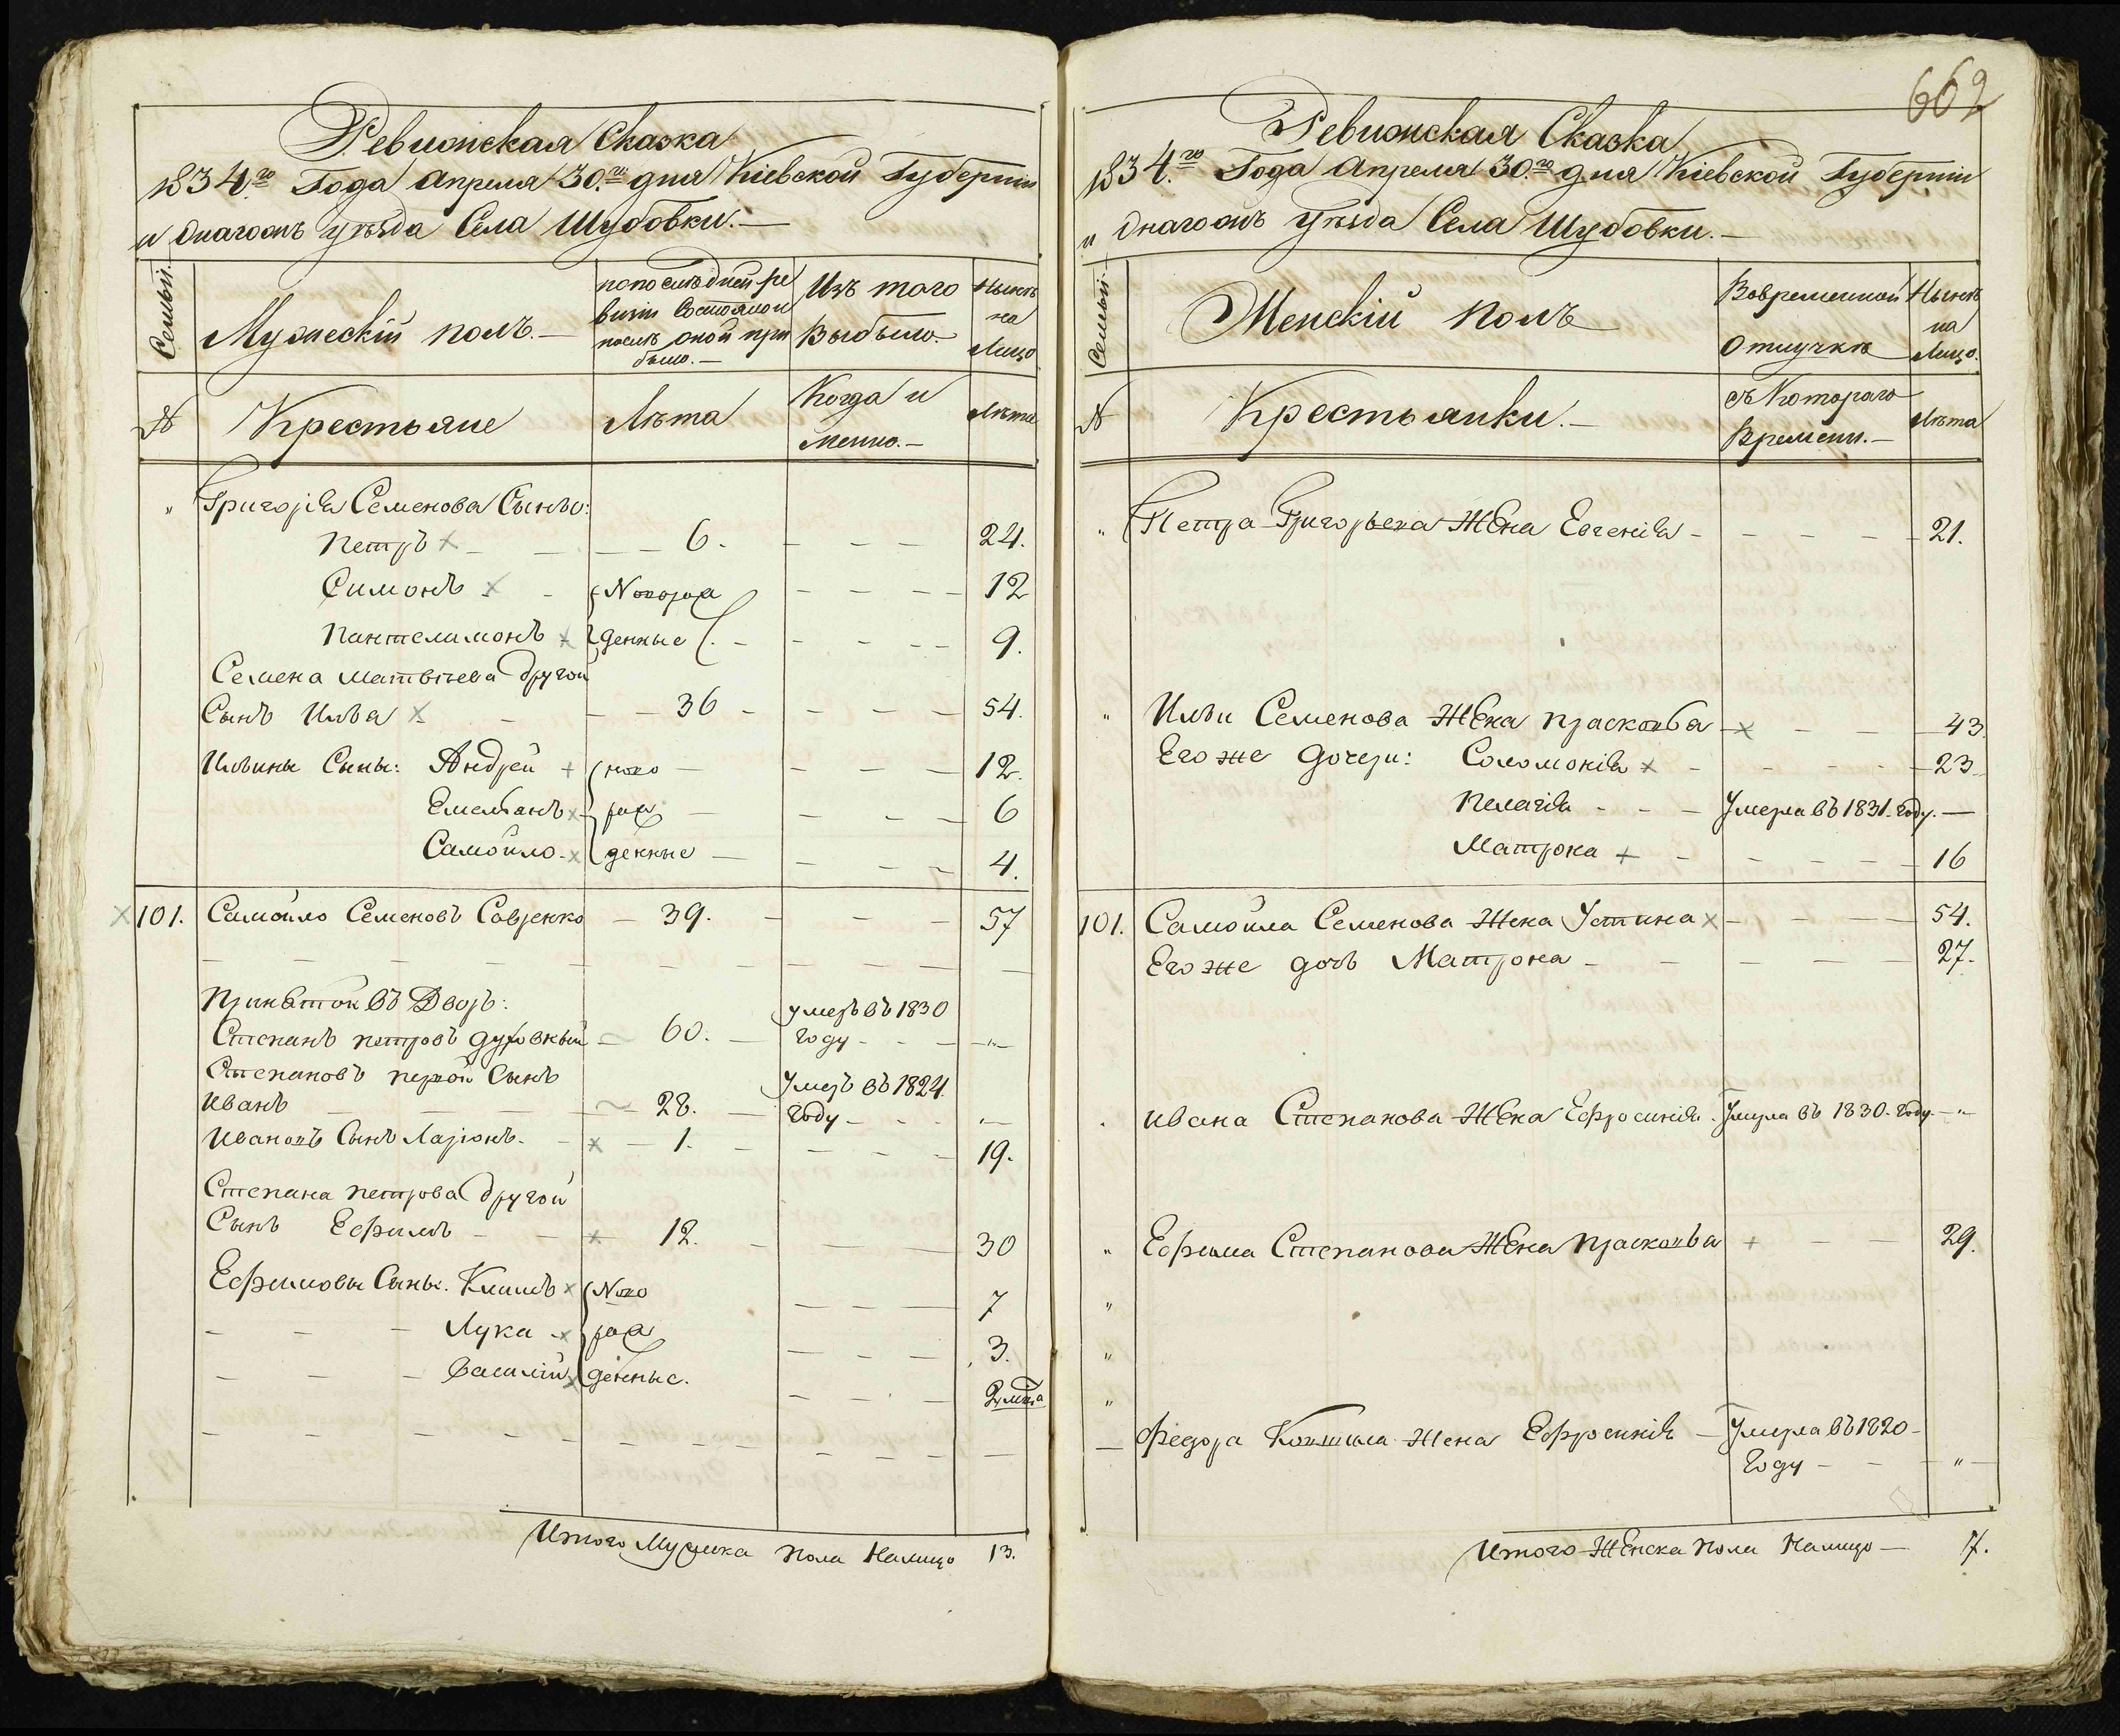 Ревизская Сказка
1834.го Года Апреля 30.го дня Кіевской Губерніи
уѣзда Села Шубовки.—
Семьи.
Мужескій полъ.—
по послѣдней ре
визіи Состояло и
послѣ оной при
было.—
Изъ того
Выбыло.—
Нынѣ
на
Лицо
№
Крестьяне
Лѣта
Когда и
менно.—
Лѣта
" Григорія Семенова Сыновъ:
Петръ × — — 6. — — — 24.
Симонъ × — Новорож — — — 12
Пантелимонъ × денные — — — 9.
Семена Матвѣева другой
Сынъ Илья × — — 36 — — — 54.
Ильины Сыны: Андрей + ново — — — 12.
Емельянъ × рож — — — 6
Самойло × денные — — — 4.
×101. Самойло Семеновъ Савренко — 39. — — — 57
Принятой въ Дворъ: умеръ въ 1830
Степанъ петровъ духовный — 60. — году — — "
Степановъ первой Сынъ Умеръ въ 1824.
Иванъ — — 28. — году — — "
Ивановъ Сынъ Ларіонъ. × — 1. — — — 19.
Степана петрова другой
Сынъ Ефимъ — × 12. — — — 30
Ефимовы Сыны. Климъ × Ново — — — 7
— — — Лука × рож — — — 3.
— — — Василій × денные. — — — 2 мѣца
Итого Мужска пола Налицо 13.
662
Ревизская Сказка
1834.го Года Апреля 30.го дня Кіевской Губерніи
уѣзда Села Шубовки.—
Семьи
Женскій полъ
Вовременной
Отлучкѣ
Нынѣ
на
Лицо.
№
Крестьянки.—
съ Котораго
Времени.—
Лѣта
" Петра Григорьева Жена Евгенія — — — — 21.
" Ильи Семенова Жена Прасковья × — — — 43.
Его же дочери: Соломонія × — — — 23.
Пелагія — — — Умерла въ 1831. году. —
Матрона + — — — — 16
101. Самойла Семенова Жена Устина × — — — 54.
Его же дочь Матрона — — — — 27.
Ивана Степанова Жена Ефросинія. Умерла въ 1830. году. — "
" Ефима Степанова Жена Прасковья + — — 29.
"
"
"
— Федора Жена Ефросинія — Умерла въ 1820 —
году — — "
Итого Женска пола Налицо — 7.